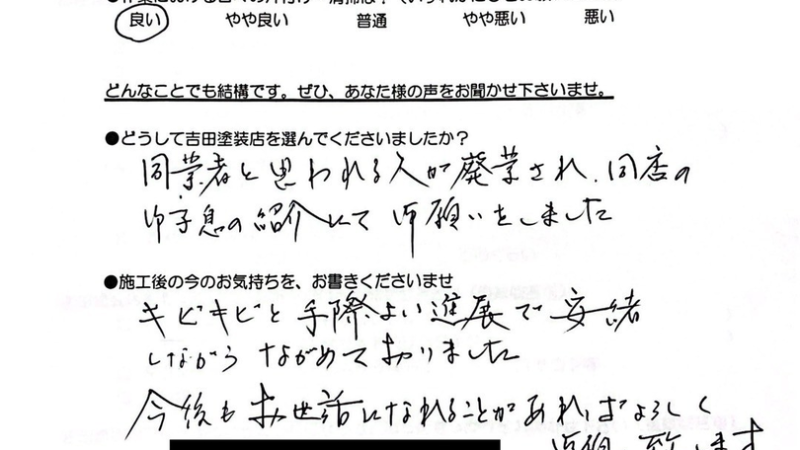 良い やや良い 普通 やや悪い 悪い
どんなことでも結構です。ぜひ、あなた様の声をお聞かせ下さいませ。
●どうして吉田塗装店を選んでくださいましたか？
同業者と思われる人が廃業され、同店の
御子息の紹介にて御願いをしました
●施工後の今のお気持ちを、お書きくださいませ
キビキビと手際よい進展で
しながらながめておりました
今後もお世話になれることがあればよろしく
致します